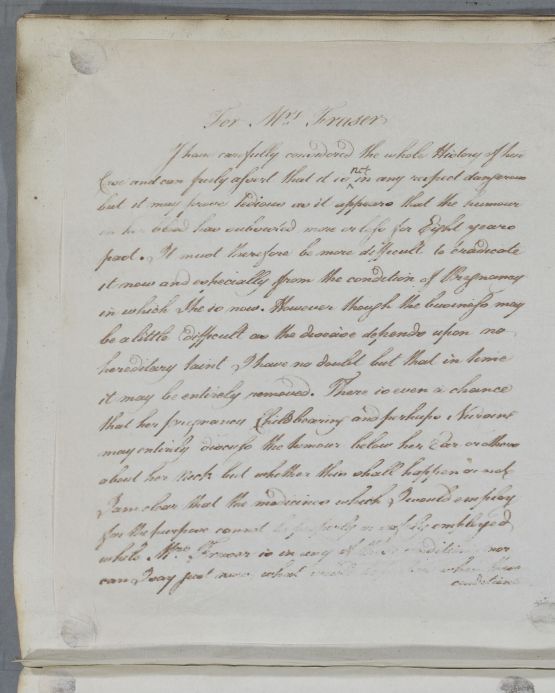 For Mrs Fraser
I have carefully considered the whole History of her
Case and can freely assert that it is not in any respect dangerous
but it may prove tedious as it appears that the humour
in her blood has subsisted more or less for Eight years
past. It must therefore be more difficult to eradicate
it now and especially from the condition of Pregnancy
in which She is now. However though the business may
be a little difficult as the disease depends upon no
hereditary taint I have no doubt but that in time
it may be entirely removed. There is even a chance
that her pregnancy Childbearing and perhaps Nursing
may entirely discuss the tumour below her Ear or others
about her Neck but whether this shall happen or not
I am clear that the medicines which I would employ
for the purpose cannot be properly or safely employed
while Mrs. Fraser is in any of these conditions, nor
can I say just now what would be when these
conditions